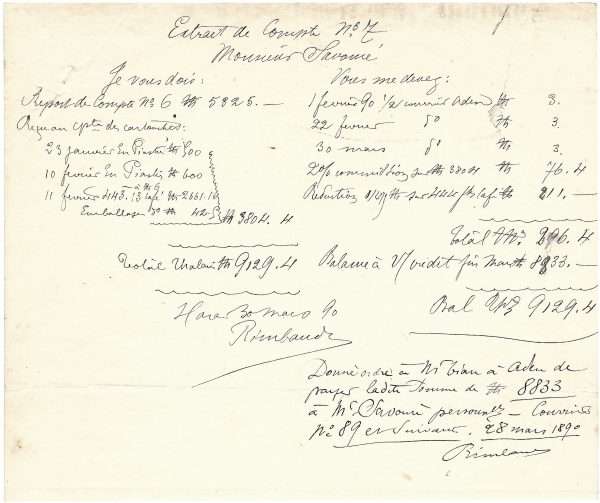 Extrait de Compte No 7
Monsieur Savouré
Je vous dois:
Report de Compte No 6 th 5325. —
Reçu au cpte des cartouches:
23 janvier En Piastres th 500
10 février En Piastres th 600
11 février 445 - 13 café th 2661.16
Emballages th 42.
th 3804. 4
Total thalaris th 9129. 4
Harar 30 Mars 90
Rimbaud
Vous me devez:
1 février 90 1/2 courrier Aden th 3.
22 février do th 3.
30 mars do th 3.
2% commission sur th 3804 th 76. 4
Réduction sur 444 th 211. —
Total 296. 4
Balance à V/ crédit fin Mars th 8833. —
Bal 9129. 4
Donné ordre à Mr Tian à Aden de
payer ladite somme de th 8833
à Mr Savouré — Courriers
No 89 et suivants. 28 mars 1890
Rimbaud